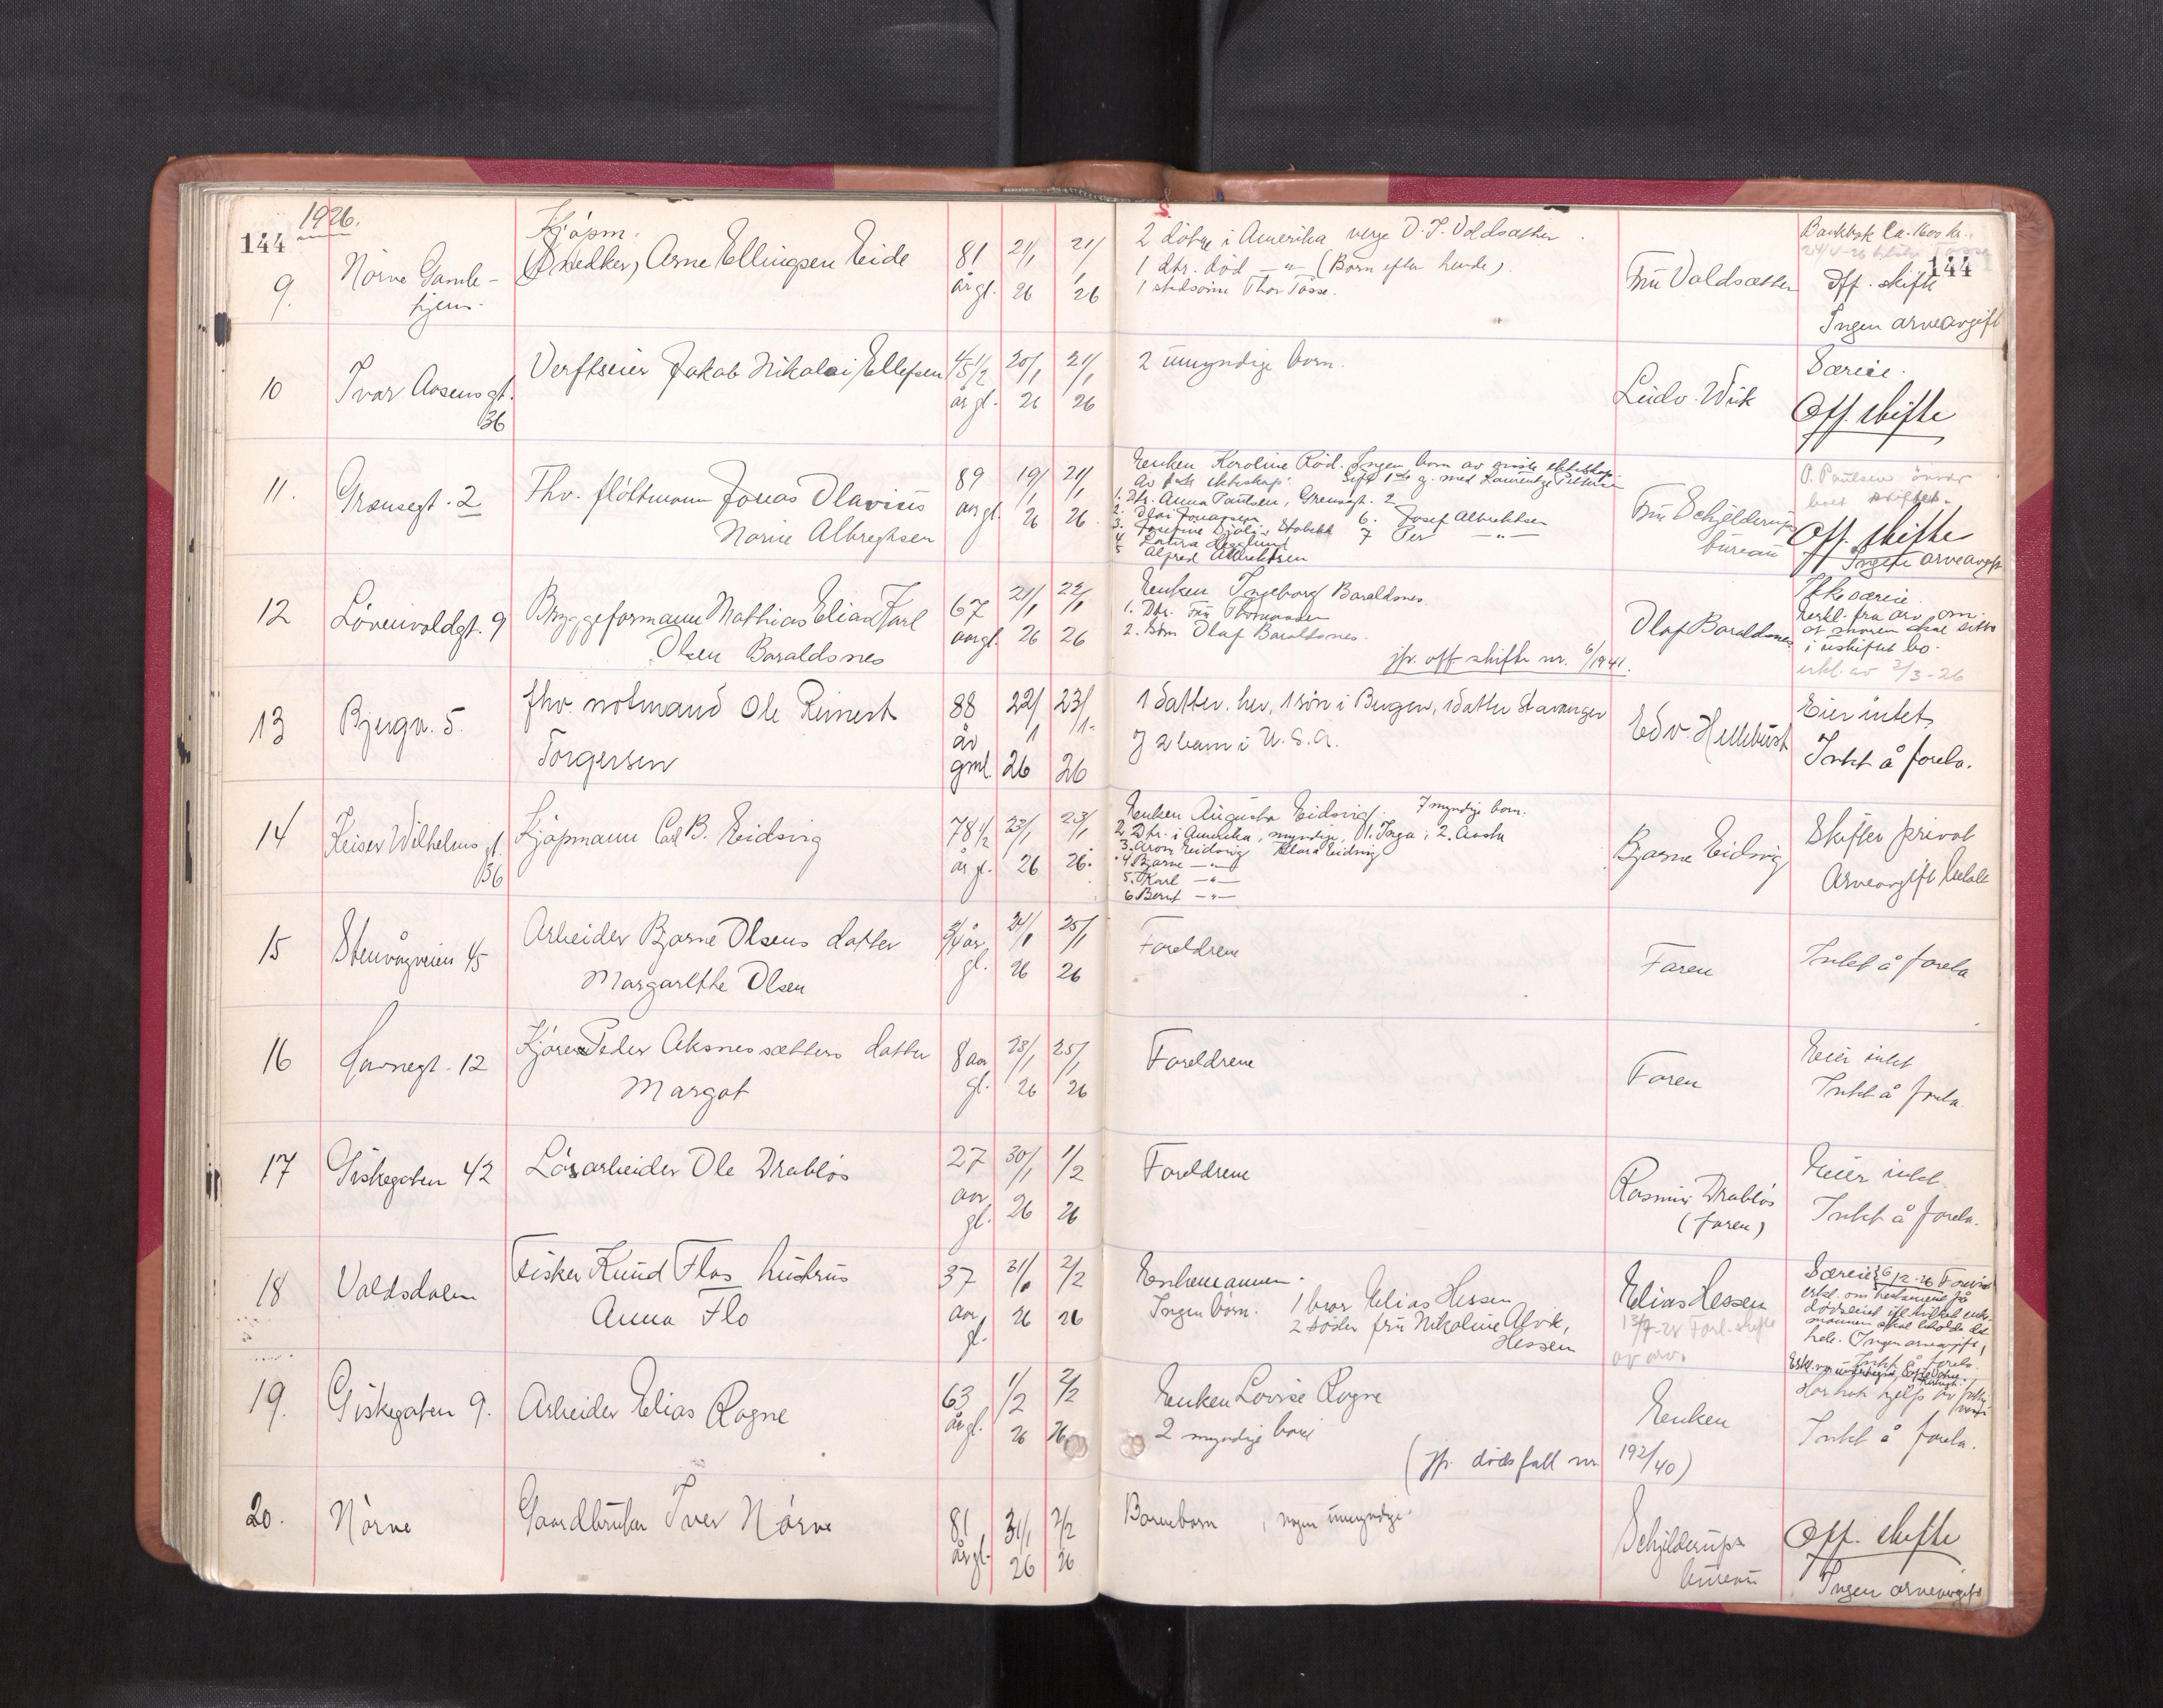 1926.
144
9.
Nørve Gamle-
hjem.
Kjøpm.
Snedker, Arne Ellingsen Eide
81
år gl.
21/1
26
21/1
26
2 døtre i Amerika verge O. J. Voldsæther.
1 dtr. død -"- (Børn efter hende).
1 stedsønn Thor Tosse.
Fru Voldsæther
Bankbok Ca. 1600 kr.
144
Off. skifte
Ingen arveavgift
10
Ivar Aasens gt.
36
Verftseier Jakob Nikolai Ellefsen
45 1/2
år gl.
20/1
26
21/1
26
2 umyndige born.
Ludv. Wiik
Særeie.
Off. skifte
11.
Grensegt. 2
Fhv. fløttmann Jonas Olavius
Norie Albregtsen
89
aar gl.
19/1
26
21/1
26
Enken Karoline Rød. Ingen born av siste ekteskap.
Av første ekteskap: Gift 1ste g. med Laurentze
1. Dtr. Anna Paulsen, Grensegt. 2
2. Olai Jonassen
3. Josefine
4 Laura
5 Alfred Albrektsen
6. Josef Albrektsen
7 Per -"-
Fru Schjelderups
bureau
P. Paulsen ønsker
boet skiftet.
Off. skifte
Ingen arveavgift
12
Løvenvoldgt. 9
Bryggeformann Mathias Elias Karl
Olsen Baraldsnes
67
aar gl.
21/1
26
22/1
26
Enken Ingeborg Baraldsnes.
1. Dtr. Fru
2. Søn Olaf Baraldsnes.
jfr. off skifte nr. 6/1941.
Olaf Baraldsnes
Ikke særeie.
Erkl. fra arv. om
at moren skal sitte
i uskiftet bo.
erkl. av 2/3-26
13
Bjerga. 5.
fhv. notmand Ole Reinert
Torgersen
88
år
gml
22/1
26
23/1.
26
1 datter. her, 1 søn i Bergen, 1 datter Stavanger
og 2 barn i U.S.A.
Edv. Hellebust
Eier intet.
Intet å foreta.
14
Keiser Wilhelms gt.
36
Kjøpmann Carl B. Eidsvig
78 1/2
år gl.
23/1
26
23/1
26.
Enken Augusta Eidsvig. 7 myndige born.
2 Dtr. i Amerika, myndige, 1. Inga; 2. Aasta
3. Aron Eidsvig Klara Eidsvig
4 Bjarne -"-
5. Karl -"-
6 Bernt -"-
Bjarne Eidsvig
Skifter privat
Arveavgift betalt
15
Stenvågveien 45
Arbeider Bjarne Olsens datter
Margarethe Olsen
3/4 år
gl.
24/1
26
25/1
26
Foreldrene
Faren
Intet å foreta
16
Kjører Peder Aksnessætters datter
Margot
8 aar
gl.
23/1
26
25/1
26
Foreldrene
Faren
Eier intet
Intet å foreta.
17
Giskegaten 42
Løsarbeider Ole Drabløs
27
aar
gl.
30/1
26
1/2
26
Foreldrene
Rasmus Drabløs
(faren)
Eier intet.
Intet å foreta.
18
Valdsdalen
Fisker Knud Flos hustru
Anna Flo
37
aar
gl.
31/1
26
2/2
26
Enkemannen.
Ingen børn. 1 bror Elias Hessen
2 søster fru Nikoline Alvik,
Hessen
Elias Hessen
av arv.
Særeie
erkl. om testament på
dødsleiet
mannen skal beholde det
hele. Ingen arveavgift,
Intet å foreta.
19.
Giskegaten 9.
Arbeider Elias Rogne
63
år gl.
1/2
26
2/2
26
Enken Lovise Rogne
2 myndige born
(jfr. dødsfall nr 192/40)
Enken
Har hat hjelp av
Intet å foreta.
20.
Nørve
Gaardbruker Iver Nørve
81
år gl.
31/1
26
2/2
26
Barneborn, nogen umyndige.
Schjelderups
bureau
Off. skifte
Ingen arveavgift